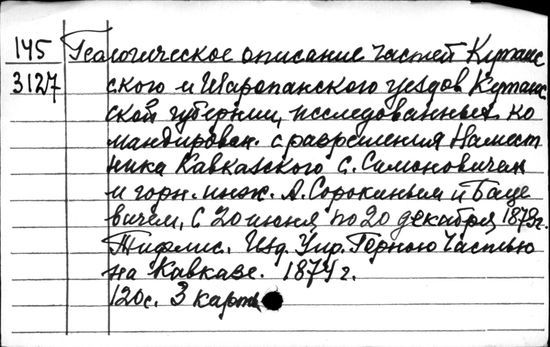 145 Геологическое описание частей Кутаис
3127 ского и Шаропанского уездов Кутаис
ской губернии, исследованных ко
мандирован. с разрешения Намест
ника Кавказского С. Симоновичем
и горн. инж. А. Сорокиным и Баце
вичем, с 20 июня по 20 декабря 1873г.
Тифлис. Изд. Упр. Горною Частью
на Кавказе. 1874 г.
120с. 3 карты